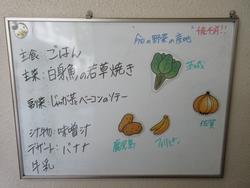 今日の野菜の産地
主食 ごはん
主菜 白身魚の若草焼き
副菜 じゃが芋ベーコンのソテー
汁物 味噌汁
デザート バナナ
牛乳
茨城
佐賀
鹿児島
フィリピン